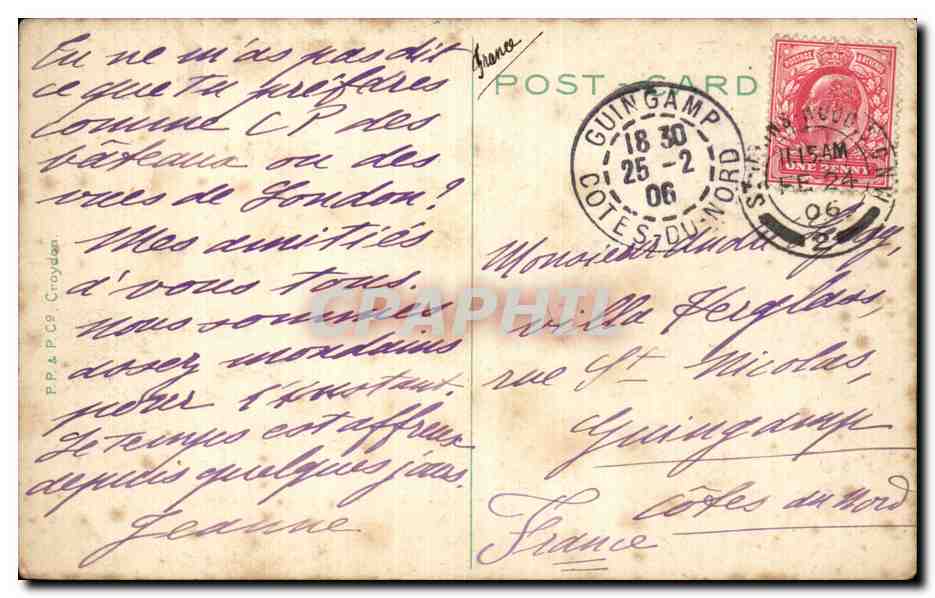 Tu ne m'as pas dit
ce que tu préfères
comme CP des
bâteaux ou des
vues de London?
Mes amitiés
à vous tous.
Nous sommes
assez mondains
pour l'instant.
Le temps est affreux
depuis quelques jours.
Jeanne
P.P. & P. Co. Croydon.
France
POST-CARD
GUINGAMP
18 30
25 - 2
06
COTES-DU-NORD
POSTAGE REVENUE
ONE PENNY
11.15AM
FE 24
06
2
CPAPHIL
Monsieur
villa
rue St Nicolas,
Guingamp
Côtes du Nord
France